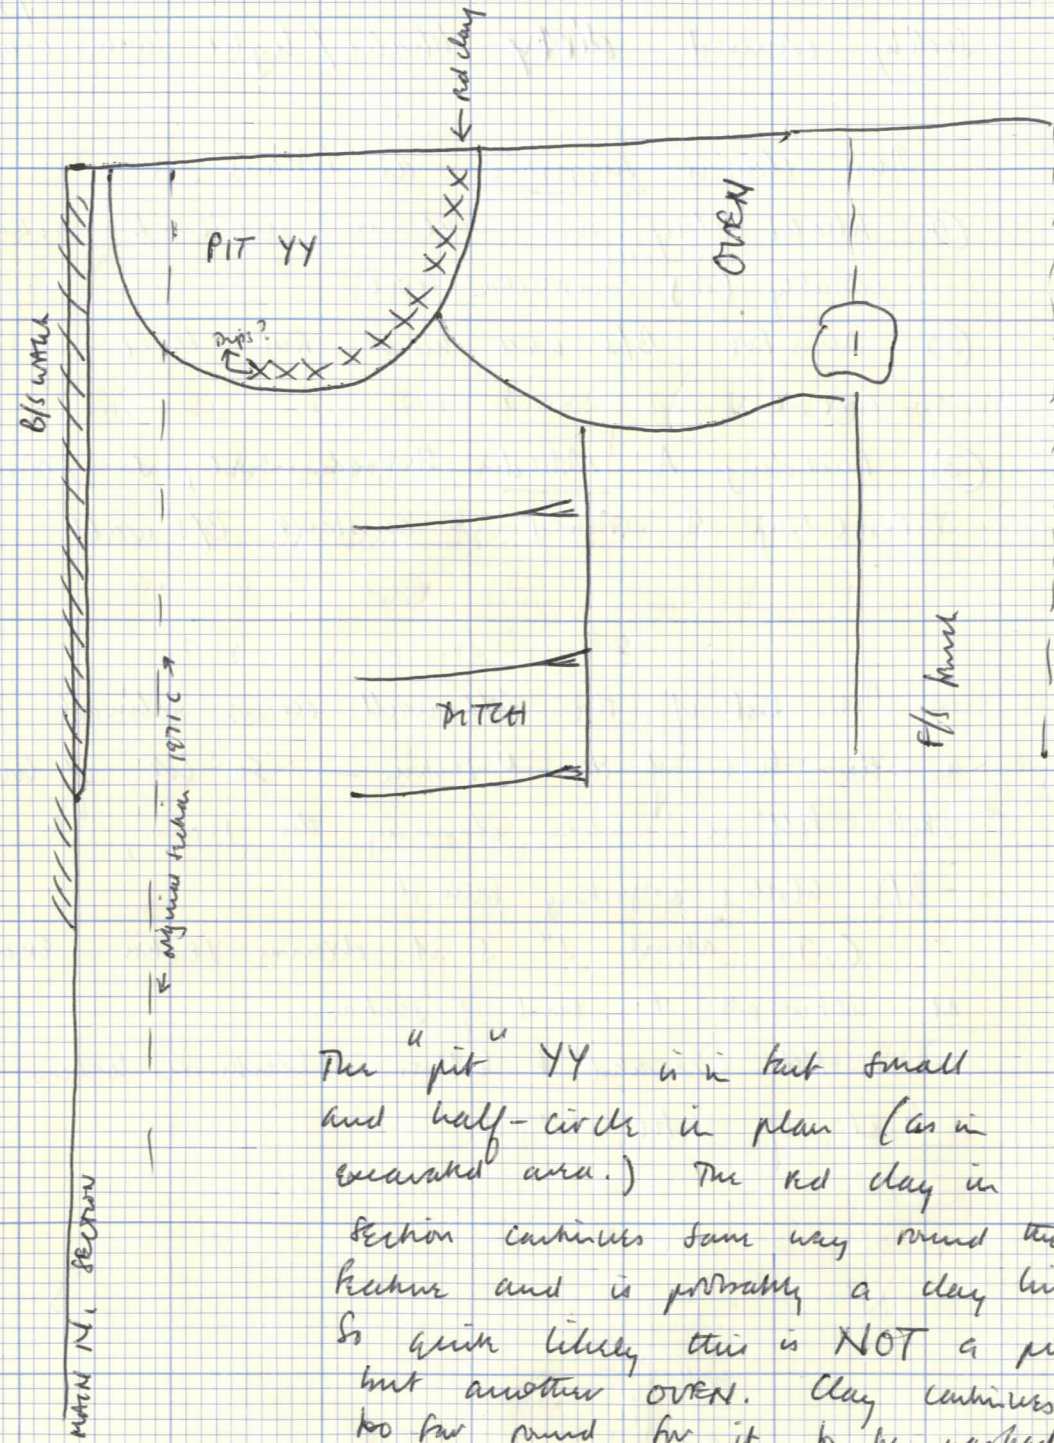 ← red clay
PIT YY
Dips?
OVEN
B/S WALL
DITCH
F/S trench
← original section 1971 C →
MAIN N. SECTION
The "pit" YY is in fact small
and half-circle in plan (as in
excavated area.) The red clay in
section continues some way round the
feature and is probably a clay
So quite likely this is NOT a
but another OVEN. Clay continues
too far round for it to be